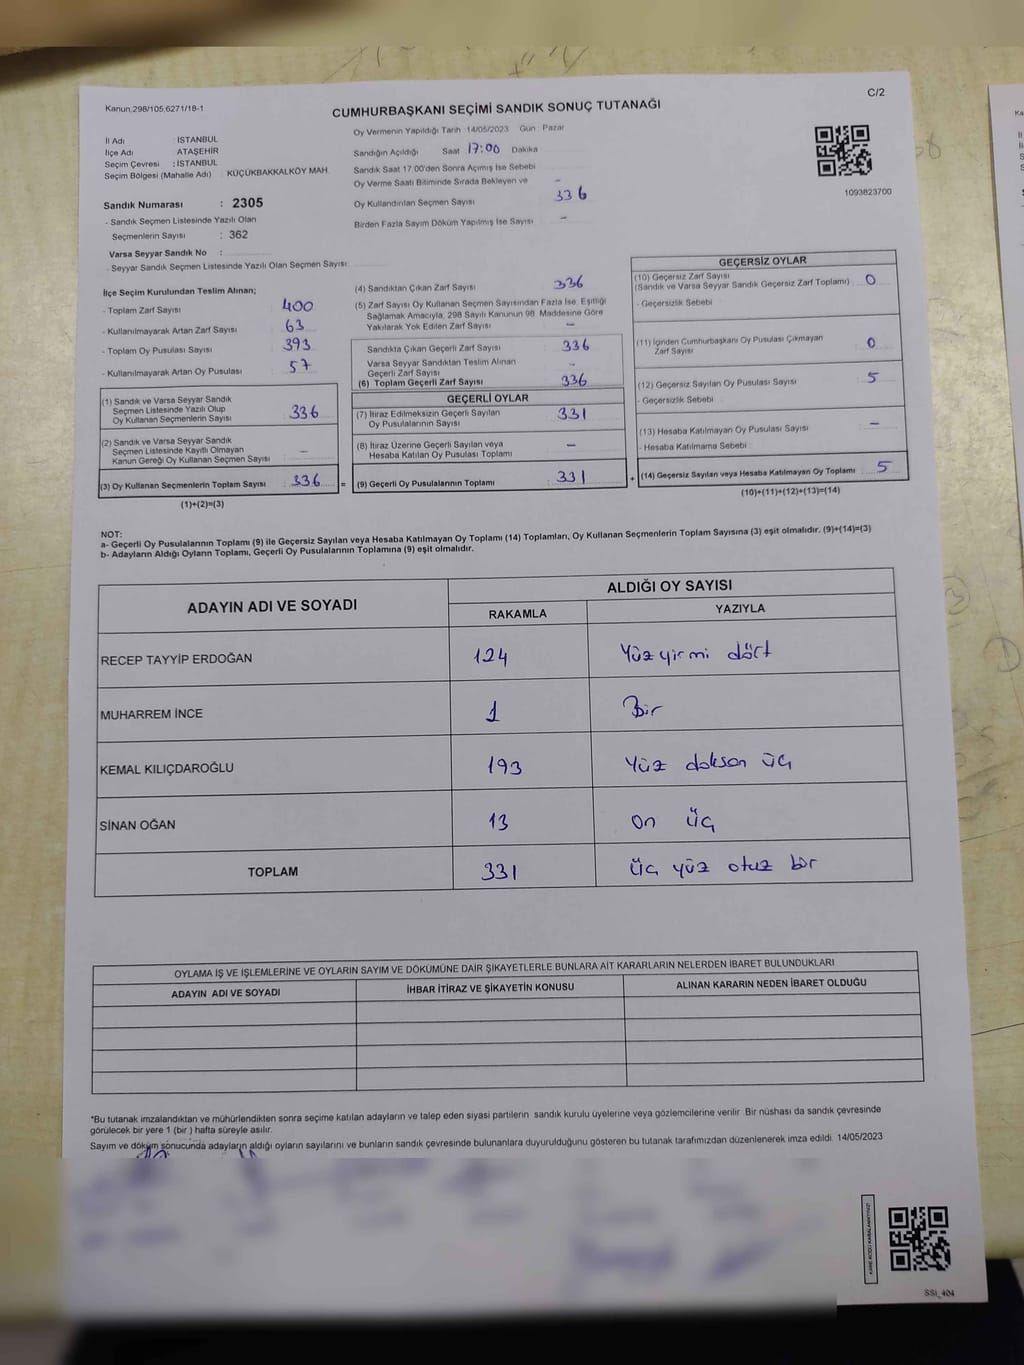 Kanun 298/105,6271/18-1
CUMHURBAŞKANI SEÇİMİ SANDIK SONUÇ TUTANAĞI
C/2
İl Adı : İSTANBUL
İlçe Adı : ATAŞEHİR
Seçim Çevresi : İSTANBUL
Seçim Bölgesi (Mahalle Adı) : KÜÇÜKBAKKALKÖY MAH.
Sandık Numarası : 2305
- Sandık Seçmen Listesinde Yazılı Olan
Seçmenlerin Sayısı : 362
Varsa Seyyar Sandık No :
- Seyyar Sandık Seçmen Listesinde Yazılı Olan Seçmen Sayısı:
Oy Vermenin Yapıldığı Tarih 14/05/2023 Gün Pazar
Sandığın Açıldığı Saat 17:00 Dakika
Sandık Saat 17.00'den Sonra Açımış İse Sebebi
Oy Verme Saati Bitiminde Sırada Bekleyen ve -
Oy Kullandırılan Seçmen Sayısı 336
Birden Fazla Sayım Döküm Yapılmış İse Sayısı -
1093823700
İlçe Seçim Kurulundan Teslim Alınan;
- Toplam Zarf Sayısı 400
- Kullanılmayarak Artan Zarf Sayısı 63
- Toplam Oy Pusulası Sayısı 393
- Kullanılmayarak Artan Oy Pusulası 57
(1) Sandık ve Varsa Seyyar Sandık
Seçmen Listesinde Yazılı Olup
Oy Kullanan Seçmenlerin Sayısı 336
(2) Sandık ve Varsa Seyyar Sandık
Seçmen Listesinde Kayıtlı Olmayan
Kanun Gereği Oy Kullanan Seçmen Sayısı -
(3) Oy Kullanan Seçmenlerin Toplam Sayısı : 336 =
(1)+(2)=(3)
(4) Sandıktan Çıkan Zarf Sayısı 336
(5) Zarf Sayısı Oy Kullanan Seçmen Sayısından Fazla İse, Eşitliği
Sağlamak Amacıyla, 298 Sayılı Kanunun 98. Maddesine Göre
Yakılarak Yok Edilen Zarf Sayısı -
Sandıkta Çıkan Geçerli Zarf Sayısı 336
Varsa Seyyar Sandıktan Teslim Alınan
Geçerli Zarf Sayısı -
(6) Toplam Geçerli Zarf Sayısı 336
GEÇERLİ OYLAR
(7) İtiraz Edilmeksizin Geçerli Sayılan
Oy Pusulalarının Sayısı : 331
(8) İtiraz Üzerine Geçerli Sayılan veya
Hesaba Katılan Oy Pusulası Toplamı -
(9) Geçerli Oy Pusulalarının Toplamı : 331 +
GEÇERSİZ OYLAR
(10) Geçersiz Zarf Sayısı
(Sandık ve Varsa Seyyar Sandık Geçersiz Zarf Toplamı) : 0
- Geçersizlik Sebebi
(11) İçinden Cumhurbaşkanı Oy Pusulası Çıkmayan
Zarf Sayısı 0
(12) Geçersiz Sayılan Oy Pusulası Sayısı : 5
- Geçersizlik Sebebi :
(13) Hesaba Katılmayan Oy Pusulası Sayısı : -
- Hesaba Katılmama Sebebi :
(14) Geçersiz Sayılan veya Hesaba Katılmayan Oy Toplamı : 5
(10)+(11)+(12)+(13)=(14)
NOT:
a- Geçerli Oy Pusulalarının Toplamı (9) ile Geçersiz Sayılan veya Hesaba Katılmayan Oy Toplamı (14) Toplamları, Oy Kullanan Seçmenlerin Toplam Sayısına (3) eşit olmalıdır. (9)+(14)=(3)
b- Adayların Aldığı Oyların Toplamı, Geçerli Oy Pusulalarının Toplamına (9) eşit olmalıdır.
ADAYIN ADI VE SOYADI
ALDIĞI OY SAYISI
RAKAMLA YAZIYLA
RECEP TAYYİP ERDOĞAN 124 Yüz yirmi dört
MUHARREM İNCE 1 Bir
KEMAL KILIÇDAROĞLU 193 Yüz doksan üç
SİNAN OĞAN 13 on üç
TOPLAM 331 üç yüz otuz bir
OYLAMA İŞ VE İŞLEMLERİNE VE OYLARIN SAYIM VE DÖKÜMÜNE DAİR ŞİKAYETLERLE BUNLARA AİT KARARLARIN NELERDEN İBARET BULUNDUKLARI
ADAYIN ADI VE SOYADI İHBAR İTİRAZ VE ŞİKAYETİN KONUSU ALINAN KARARIN NEDEN İBARET OLDUĞU
*Bu tutanak imzalandıktan ve mühürlendikten sonra seçime katılan adayların ve talep eden siyasi partilerin sandık kurulu üyelerine veya gözlemcilerine verilir. Bir nüshası da sandık çevresinde
görülecek bir yere 1 (bir ) hafta süreyle asılır.
Sayım ve döküm sonucunda adayların aldığı oyların sayılarını ve bunların sandık çevresinde bulunanlara duyurulduğunu gösteren bu tutanak tarafımızdan düzenlenerek imza edildi. 14/05/2023
SSİ_404